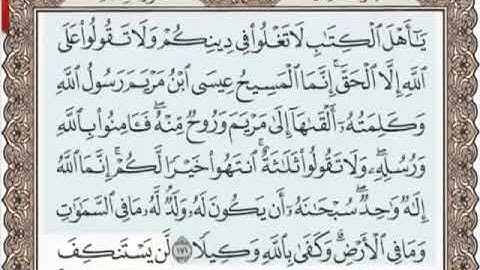 يَـٰٓأَهْلَ ٱلْكِتَـٰبِ لَا تَغْلُوا۟ فِى دِينِكُمْ وَلَا تَقُولُوا۟ عَلَى
ٱللَّهِ إِلَّا ٱلْحَقَّ ۚ إِنَّمَا ٱلْمَسِيحُ عِيسَى ٱبْنُ مَرْيَمَ رَسُولُ ٱللَّهِ
وَكَلِمَتُهُۥٓ أَلْقَىٰهَآ إِلَىٰ مَرْيَمَ وَرُوحٌ مِّنْهُ ۖ فَـَٔامِنُوا۟ بِٱللَّهِ
وَرُسُلِهِۦ ۖ وَلَا تَقُولُوا۟ ثَلَـٰثَةٌ ۚ ٱنتَهُوا۟ خَيْرًا لَّكُمْ ۚ إِنَّمَا ٱللَّهُ
إِلَـٰهٌ وَٰحِدٌ ۖ سُبْحَـٰنَهُۥٓ أَن يَكُونَ لَهُۥ وَلَدٌ ۘ لَّهُۥ مَا فِى ٱلسَّمَـٰوَٰتِ
وَمَا فِى ٱلْأَرْضِ ۗ وَكَفَىٰ بِٱللَّهِ وَكِيلًا ١٧١ لَّن يَسْتَنكِفَ